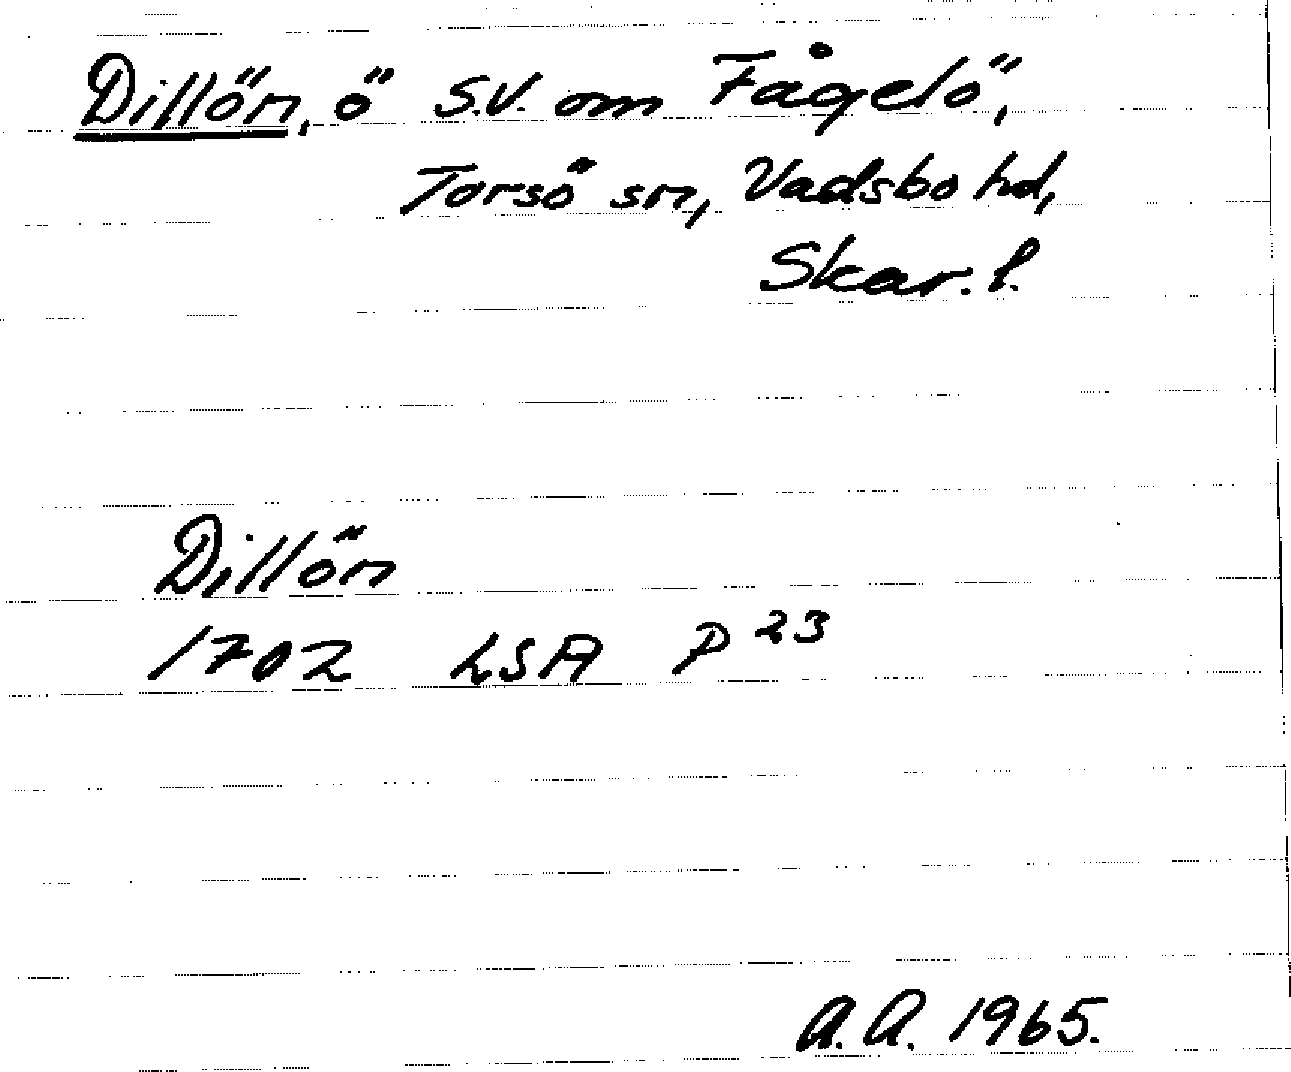 Dillön, ö S.V. om Fågelö,
Torsö sn, Vadsbo hd,
Skar. l.
Dillön
1702 LSA P 23
A.A. 1965.